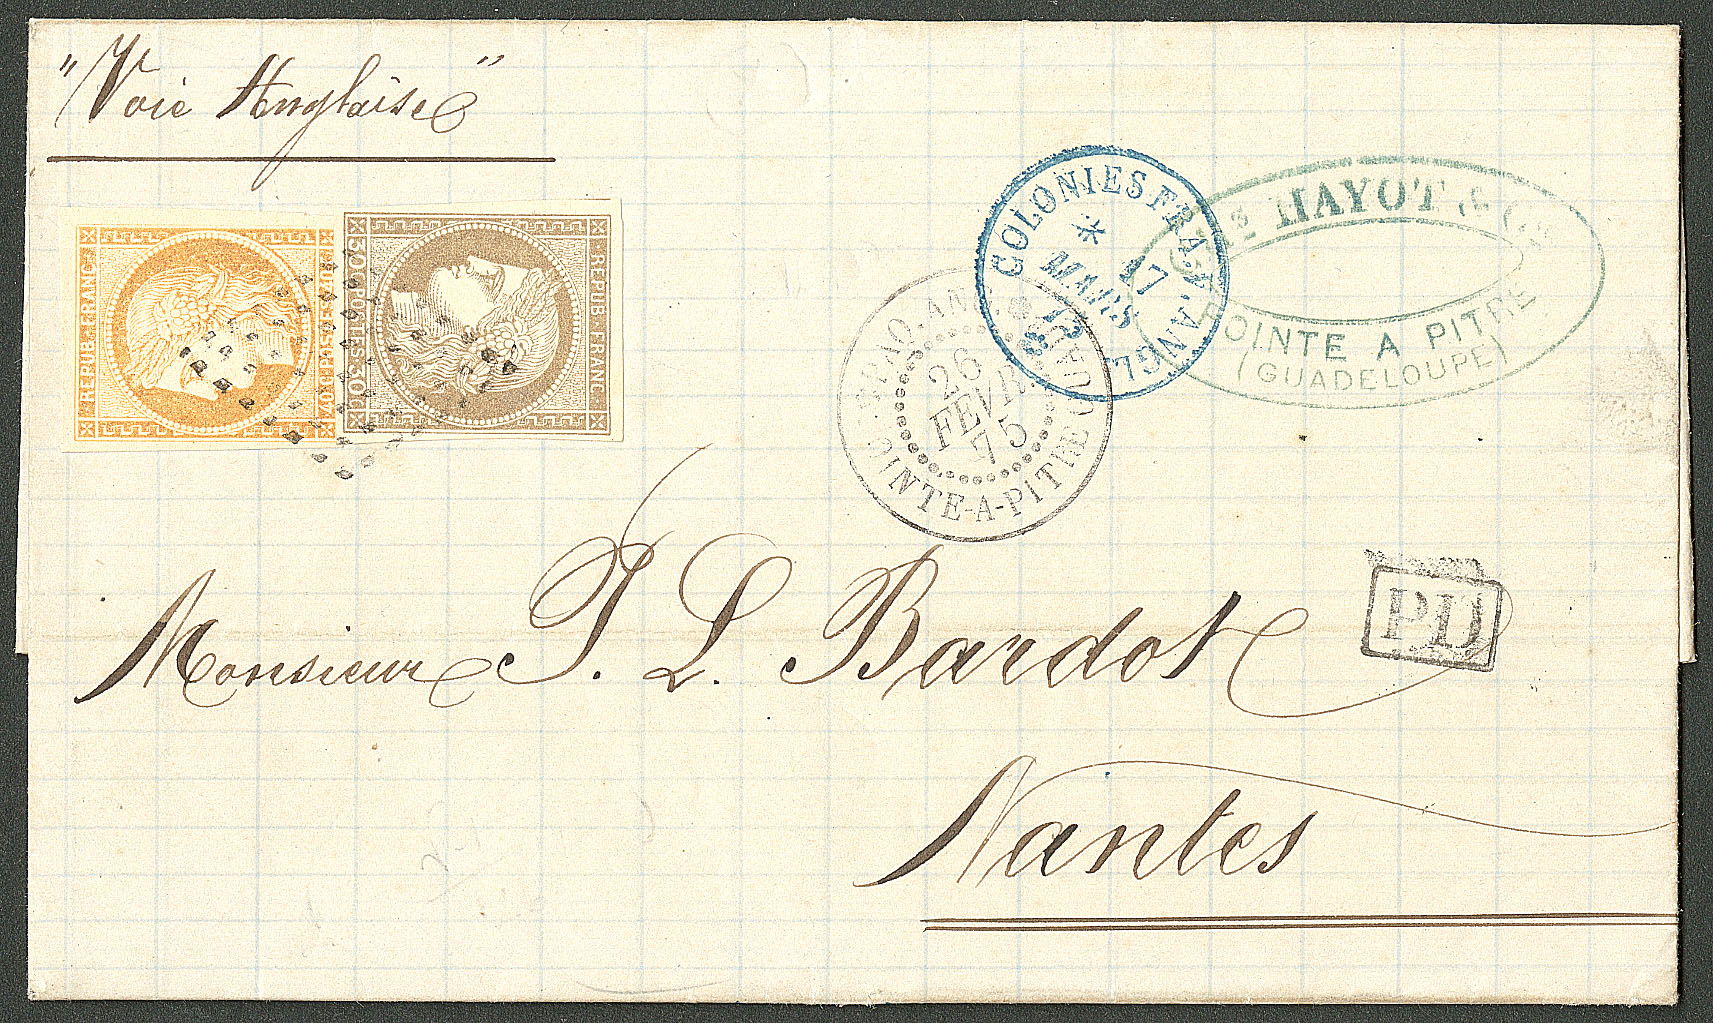 "Voie Anglaise"
REPUB. FRANC.
40 C. POSTES 40 C.
REPUB. FRANC.
30 C. POSTES 30 C.
COLONIES FRA. V. ANGL.
17
MARS
75
HAYOT & Cie
POINTE A PITRE
(GUADELOUPE)
26
FEVR.
75
POINTE-A-PITRE
PD
Monsieur P. L. Bardot
Nantes